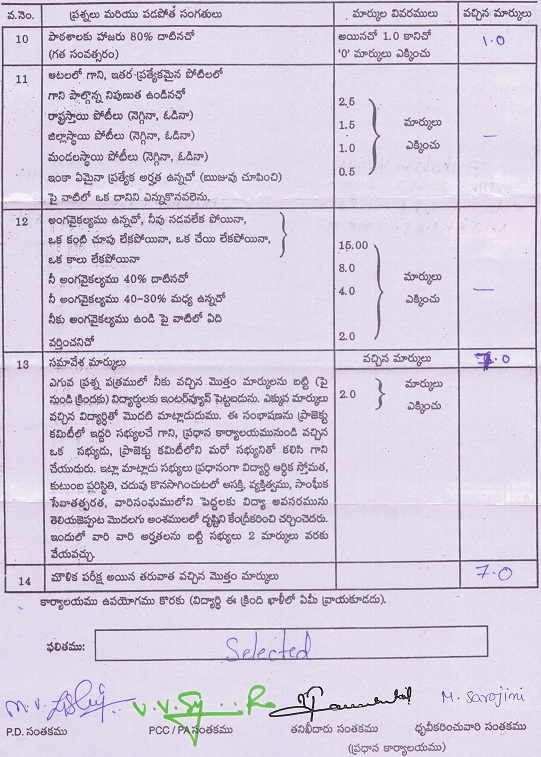 వ.నెం. ప్రశ్నలు మరియు పడపోత సంగతులు మార్కుల వివరములు వచ్చిన మార్కులు
10 పాఠశాలకు హాజరు 80% దాటినచో అయినచో 1.0 కానిచో 1.0
(గత సంవత్సరం) '0' మార్కులు ఎక్కించు
11 ఆటలలో గాని, ఇతర ప్రత్యేకమైన పోటీలలో
గాని పాల్గొన్న నిపుణుత ఉండినచో 2.5
రాష్ట్రస్తాయి పోటీలు (నెగ్గినా, ఓడినా) 1.5 మార్కులు
జిల్లాస్థాయి పోటీలు (నెగ్గినా, ఓడినా) 1.0 ఎక్కించు –
మండలస్థాయి పోటీలు (నెగ్గినా, ఓడినా) 0.5
ఇంకా ఏమైనా ప్రత్యేక అర్హత ఉన్నచో (ఋజువు చూపించి)
పై వాటిలో ఒక దానిని ఎన్నుకొనవలెను.
12 అంగవైకల్యము ఉన్నచో, నీవు నడవలేక పోయినా,
ఒక కంటి చూపు లేకపోయినా, ఒక చేయి లేకపోయినా, 15.00
ఒక కాలు లేకపోయినా 8.0
నీ అంగవైకల్యము 40% దాటినచో 4.0 మార్కులు –
నీ అంగవైకల్యము 40-30% మధ్య ఉన్నచో ఎక్కించు
నీకు అంగవైకల్యము ఉండి పై వాటిలో ఏది 2.0
వర్తించనిచో
13 సమావేశ మార్కులు వచ్చిన మార్కులు 7.0
ఎగువ ప్రశ్న పత్రములో నీకు వచ్చిన మొత్తం మార్కులను బట్టి (పై 2.0 మార్కులు
నుండి క్రిందకు) విద్యార్ధులకు ఇంటర్వ్యూవ్ పెట్టబడును. ఎక్కువ మార్కులు ఎక్కించు
వచ్చిన విద్యార్ధితో మొదటి మాట్లాడుదుము. ఈ సంభాషణను ప్రాజెక్టు
కమిటీలో ఇద్దరి సభ్యులచే గాని, ప్రధాన కార్యాలయమునుండి వచ్చిన
ఒక సభ్యుడు, ప్రాజెక్టు కమిటీలోని మరో సభ్యునితో కలిసి గాని
చేయుదురు. ఇట్లా మాట్లాడు సభ్యులు ప్రధానంగా విద్యార్థి ఆర్ధిక స్తోమత,
కుటుంబ పరిస్థితి, చదువు కొనసాగించుటలో ఆసక్తి, వ్యక్తిత్వము, సాంఘీక
సేవాతత్పరత, వారిసంఘములోని పెద్దలకు విద్యా అవసరమును
తెలియజెప్పుట మొదలగు అంశములలో దృష్టిని కేంద్రీకరించి చర్చించెదరు.
ఇందులో వారి వారి అర్హతలను బట్టి సభ్యులు 2 మార్కులు వరకు
వేయవచ్చు.
14 మౌళిక పరీక్ష అయిన తరువాత వచ్చిన మొత్తం మార్కులు 7.0
కార్యాలయము ఉపయోగము కొరకు (విద్యార్థి ఈ క్రింది ఖాళీలో ఏమీ వ్రాయకూడదు).
ఫలితము: Selected
M. Sarojini
P.D. సంతకము PCC / PA సంతకము తనిఖీదారు సంతకము ధృవీకరించువారి సంతకము
(ప్రధాన కార్యాలయము)